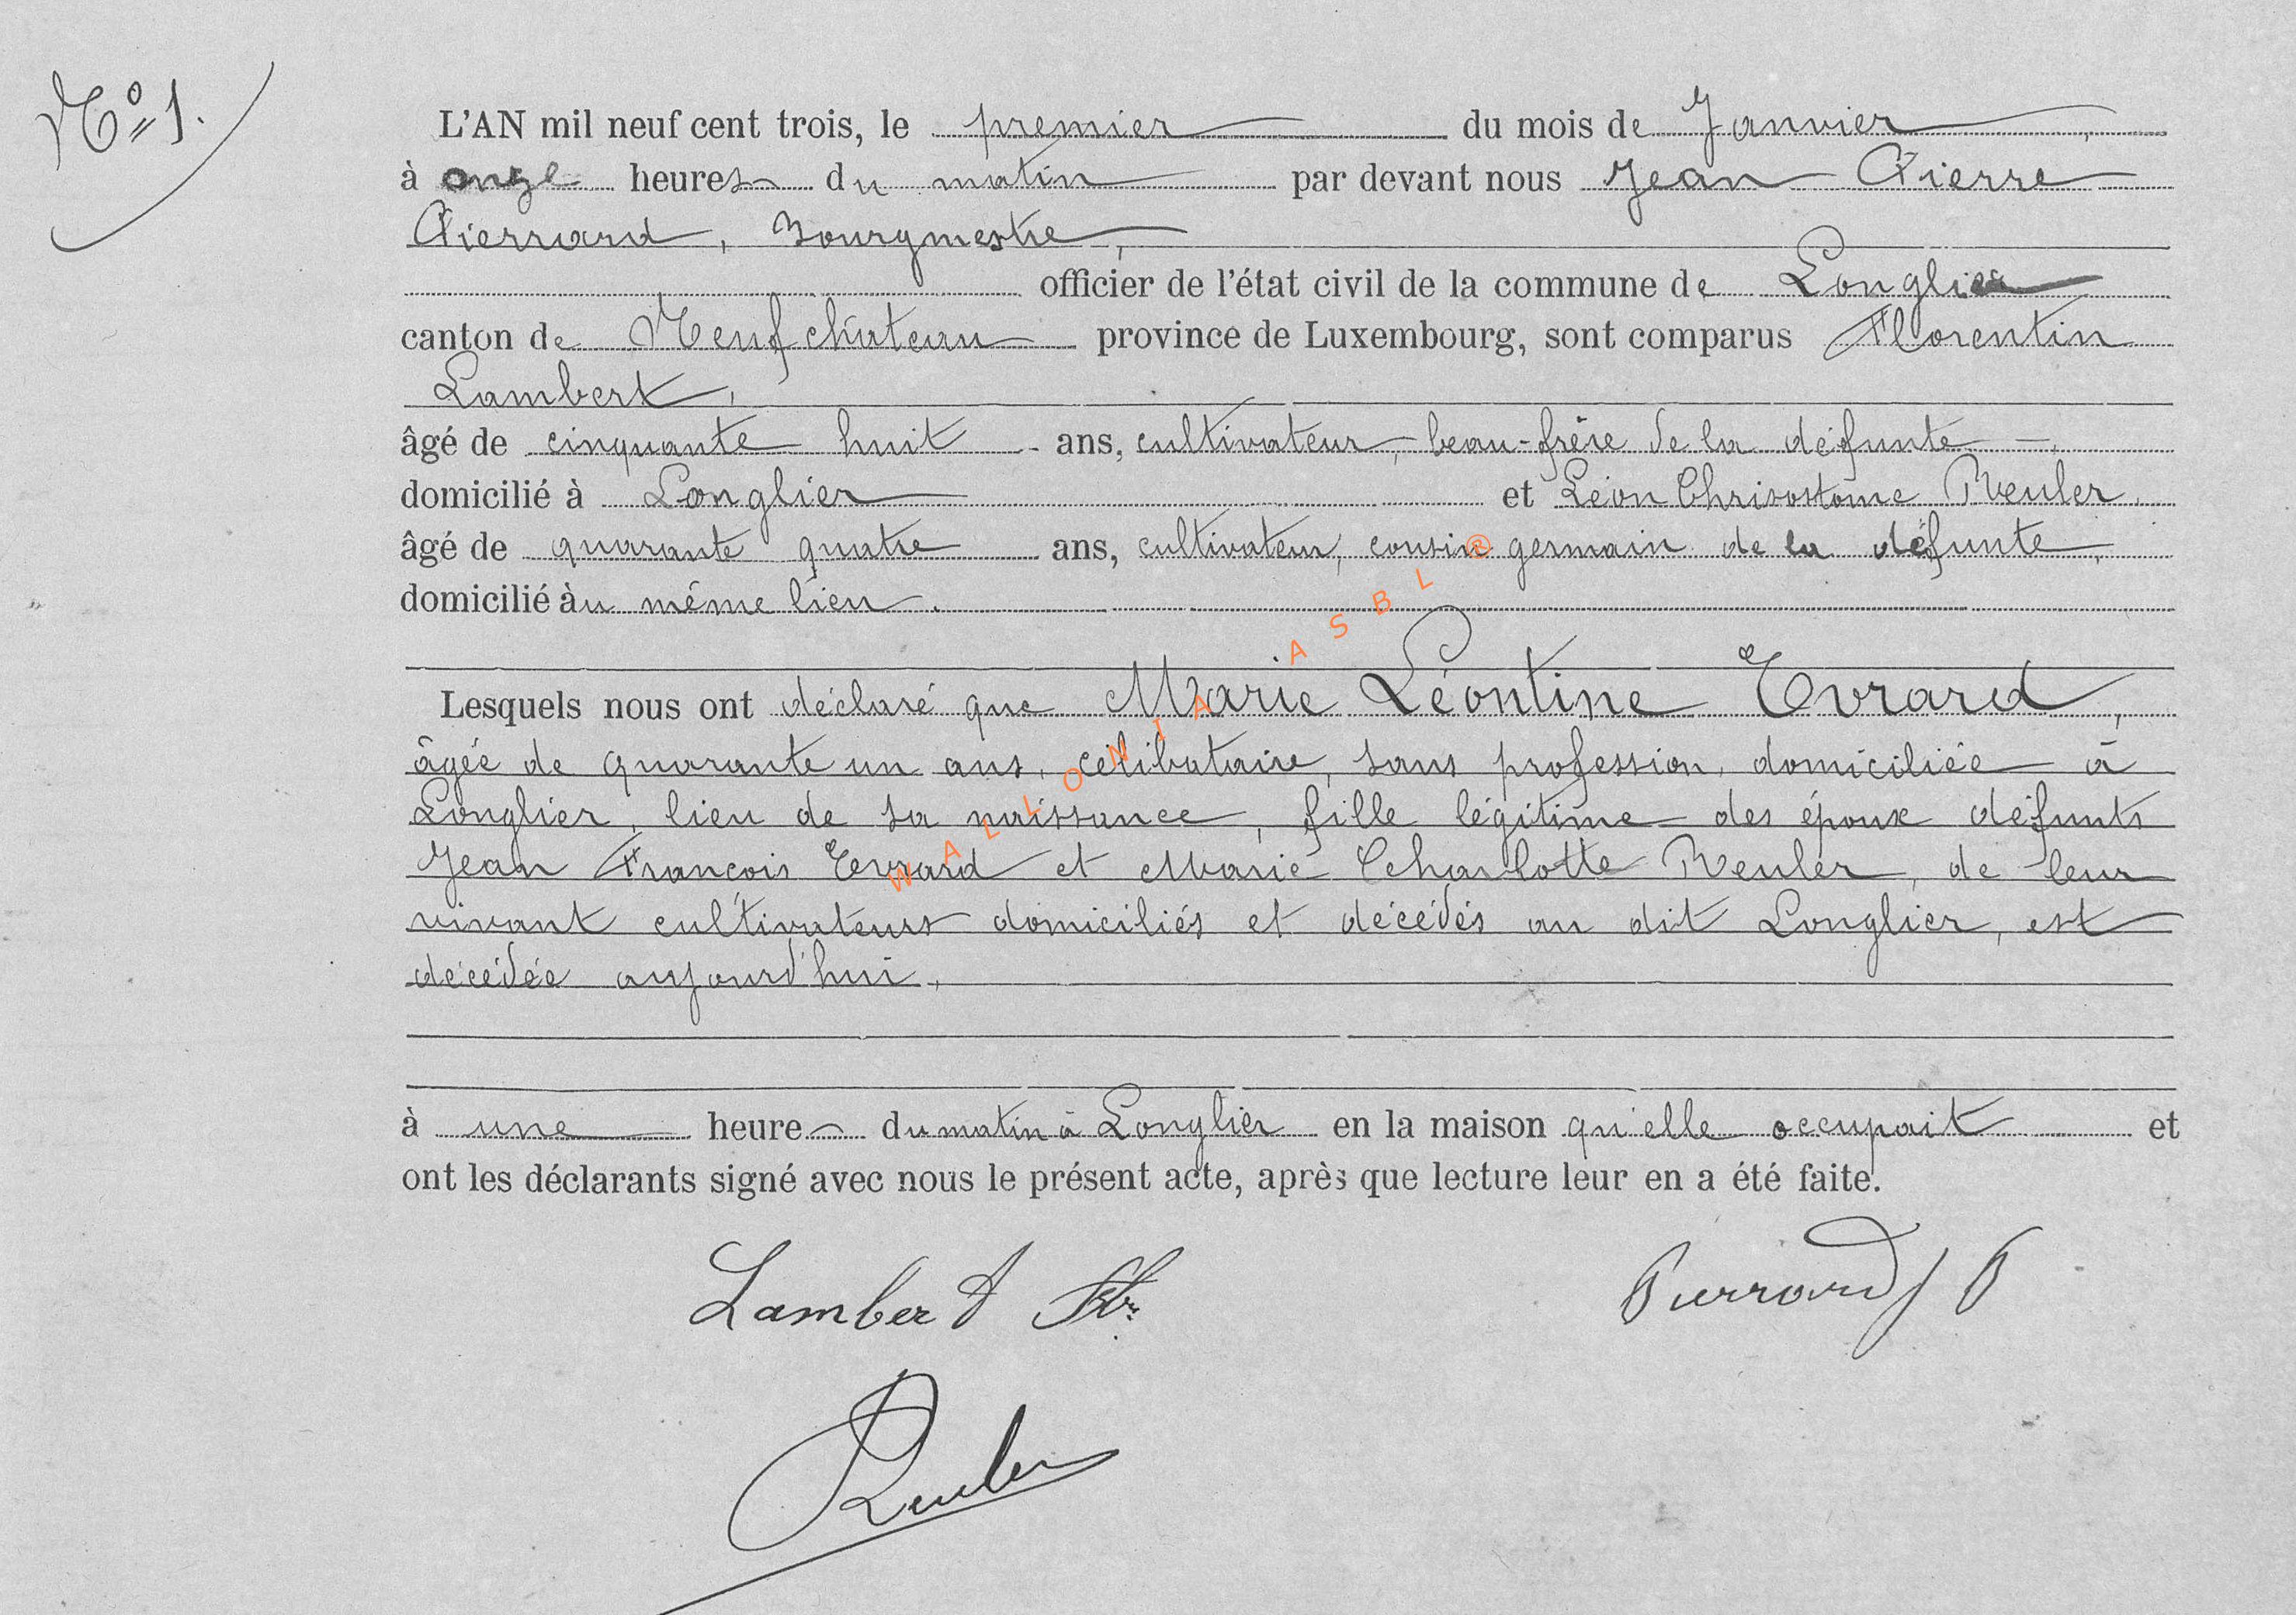 N° 1.
L'AN mil neuf cent trois, le premier du mois de Janvier,
à onze heures du matin par devant nous Jean Pierre
Pierrard, Bourgmestre,
officier de l'état civil de la commune de Longlier
canton de Neufchâteau province de Luxembourg, sont comparus Florentin
Lambert,
âgé de cinquante huit ans, cultivateur, beau-frère de la défunte,
domicilié à Longlier et Léon Chrisostome Reuler,
âgé de quarante quatre ans, cultivateur, cousin germain de la défunte,
domicilié au même lieu.
Lesquels nous ont déclaré que Marie Léontine Evrard,
âgée de quarante un ans, célibataire, sans profession, domiciliée à
Longlier, lieu de sa naissance, fille légitime des époux défunts
Jean François Evrard et Marie Charlotte Reuler, de leur
vivant cultivateurs domiciliés et décédés au dit Longlier, est
décédée aujourd'hui,
à une heure du matin à Longlier en la maison qu'elle occupait et
ont les déclarants signé avec nous le présent acte, après que lecture leur en a été faite.
Lambert Pierrard J P
Reuler
WALLONIA ASBL ®